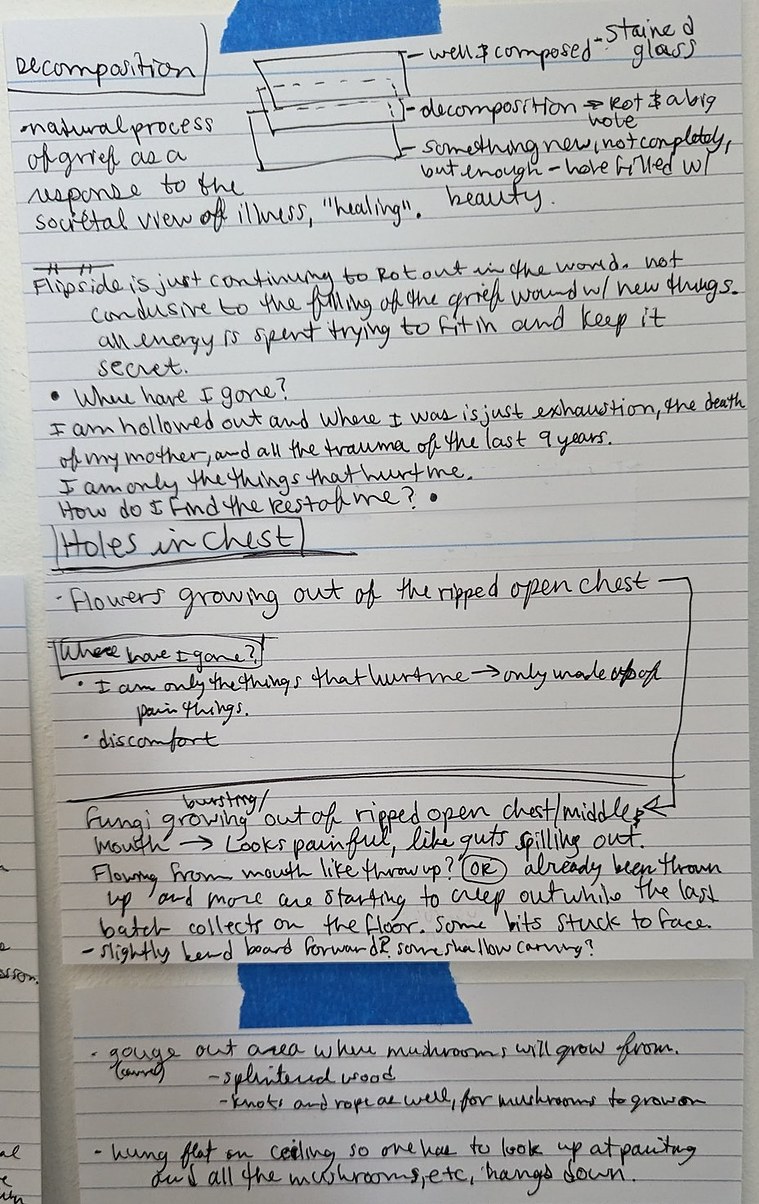 Decomposition
- well & composed - stained
glass
- decomposition → Rot & a big
hole
- something new, not completely,
but enough - hole filled w/
beauty.
• natural process
of grief as a
response to the
societal view of illness, "healing".
Flipside is just continuing to Rot out in the world. not
condusive to the filling of the grief wound w/ new things.
all energy is spent trying to fit in and keep it
secret.
• Where have I gone?
I am hollowed out and where I was is just exhaustion, the death
of my mother, and all the trauma of the last 9 years.
I am only the things that hurt me.
How do I find the rest of me? •
Holes in chest
- Flowers growing out of the ripped open chest
Where have I gone?
• I am only the things that hurt me → only made up of
pain things.
• discomfort
bursting/
Fungi growing out of ripped open chest/middle &
mouth → Looks painful, like guts spilling out.
Flowing from mouth like throw up? OR already been thrown
up and more are starting to creep out while the last
batch collects on the floor. Some bits stuck to face.
- slightly bend board forward? some shallow carving?
• gouge out area where mushrooms will grow from.
(carve) - splintered wood
- knots and rope as well, for mushrooms to grow on
• hung flat on ceiling so one has to look up at painting
and all the mushrooms, etc, hangs down.